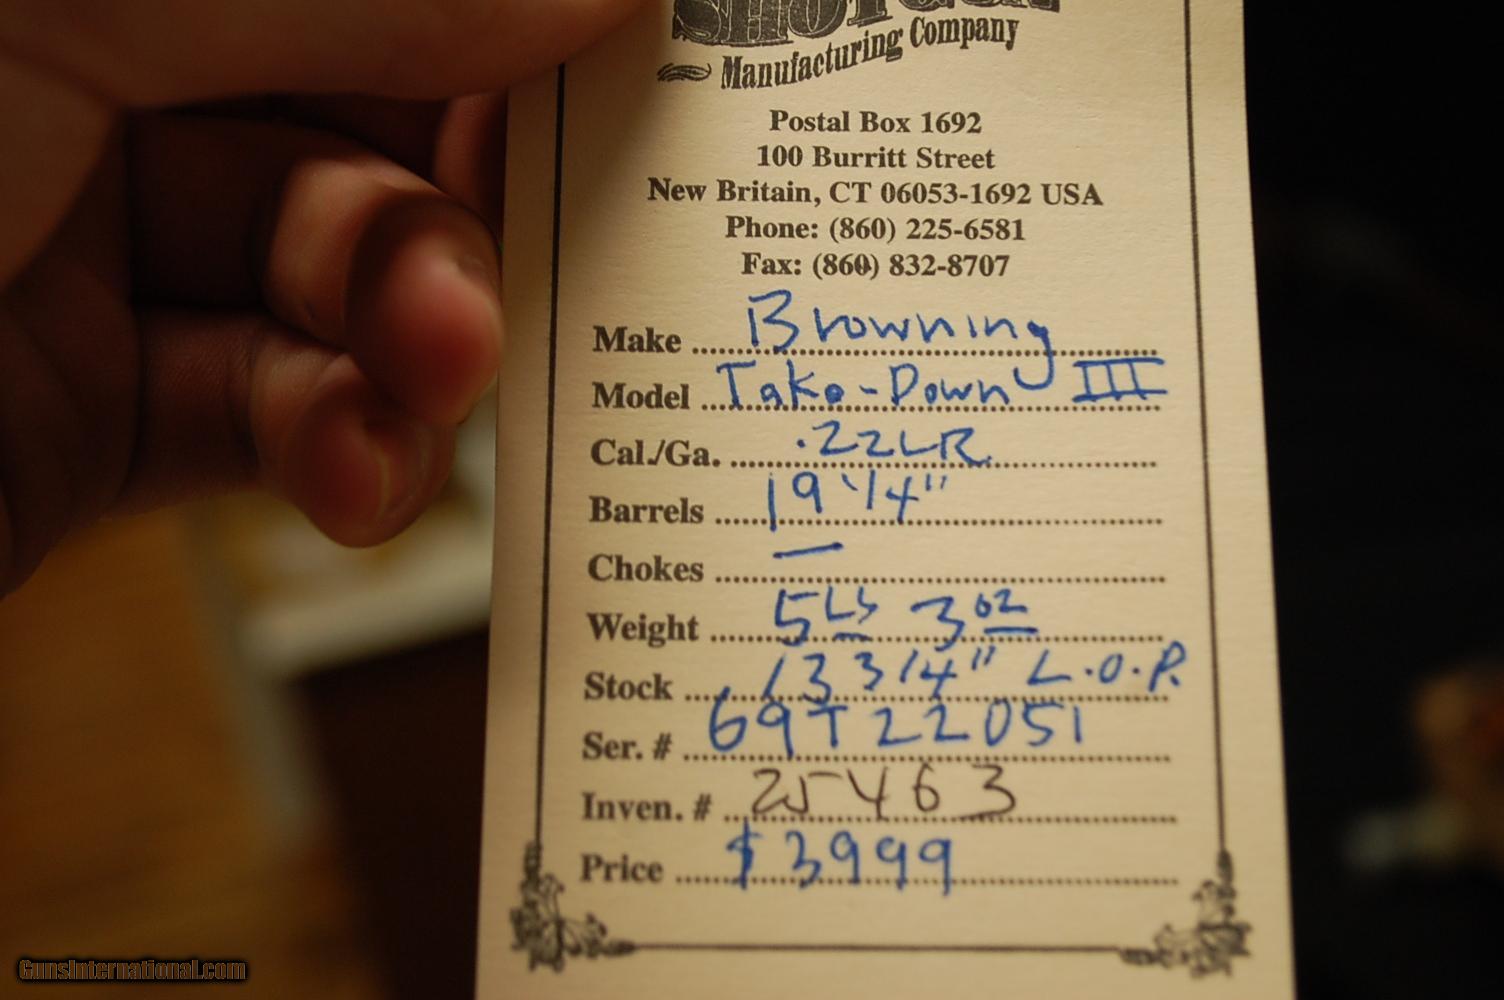 SHOTGUN
Manufacturing Company
Postal Box 1692
100 Burritt Street
New Britain, CT 06053-1692 USA
Phone: (860) 225-6581
Fax: (860) 832-8707
Make Browning
Model Take-Down III
Cal./Ga. .22LR
Barrels 19 1/4"
Chokes —
Weight 5 Lb 3 oz
Stock 13 3/4" L.O.P.
Ser. # 69T22051
Inven. # 25463
Price $3999
GunsInternational.com